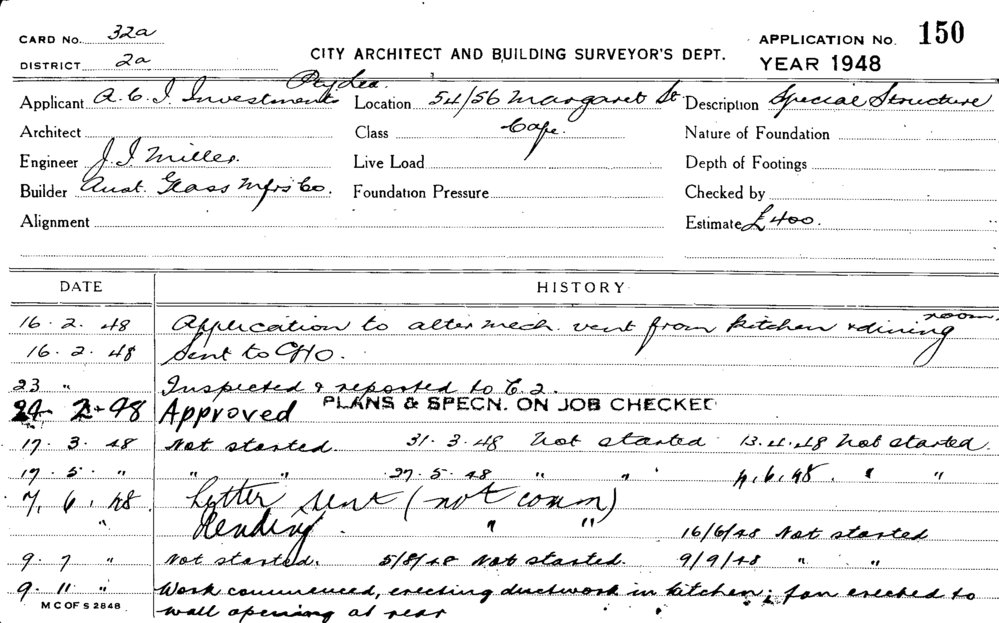 CARD No. 32a
DISTRICT 2a
CITY ARCHITECT AND BUILDING SURVEYOR'S DEPT.
APPLICATION No. 150
YEAR 1948
Applicant A.C.I. Investments Pty Ltd. Location 54/56 Margaret St. Description Special Structure
Architect Class Cafe. Nature of Foundation
Engineer J. I Miller. Live Load Depth of Footings
Builder Aust. Glass Mfrs Co. Foundation Pressure Checked by
Alignment Estimate £400.
DATE HISTORY
16. 2. 48 Application to alter mech. vent from kitchen & dining room.
16. 2. 48 Sent to CHO.
23 " Inspected & reported to C.2.
24 2 - 48 Approved PLANS & SPECN. ON JOB CHECKED
17. 3. 48 Not started. 31. 3. 48 Not started 13.4.48 Not started.
17. 5. " " " 27. 5. 48 " " 4.6.48. " "
7. 6. 48 Letter sent (not comm)
" Pending " " 16/6/48 Not started
9. 7 " Not started. 5/8/48 Not started. 9/9/48 " "
9. 11 " Work commenced, erecting ductwork in kitchen; fan erected to
wall opening at rear
M C OF S 2848